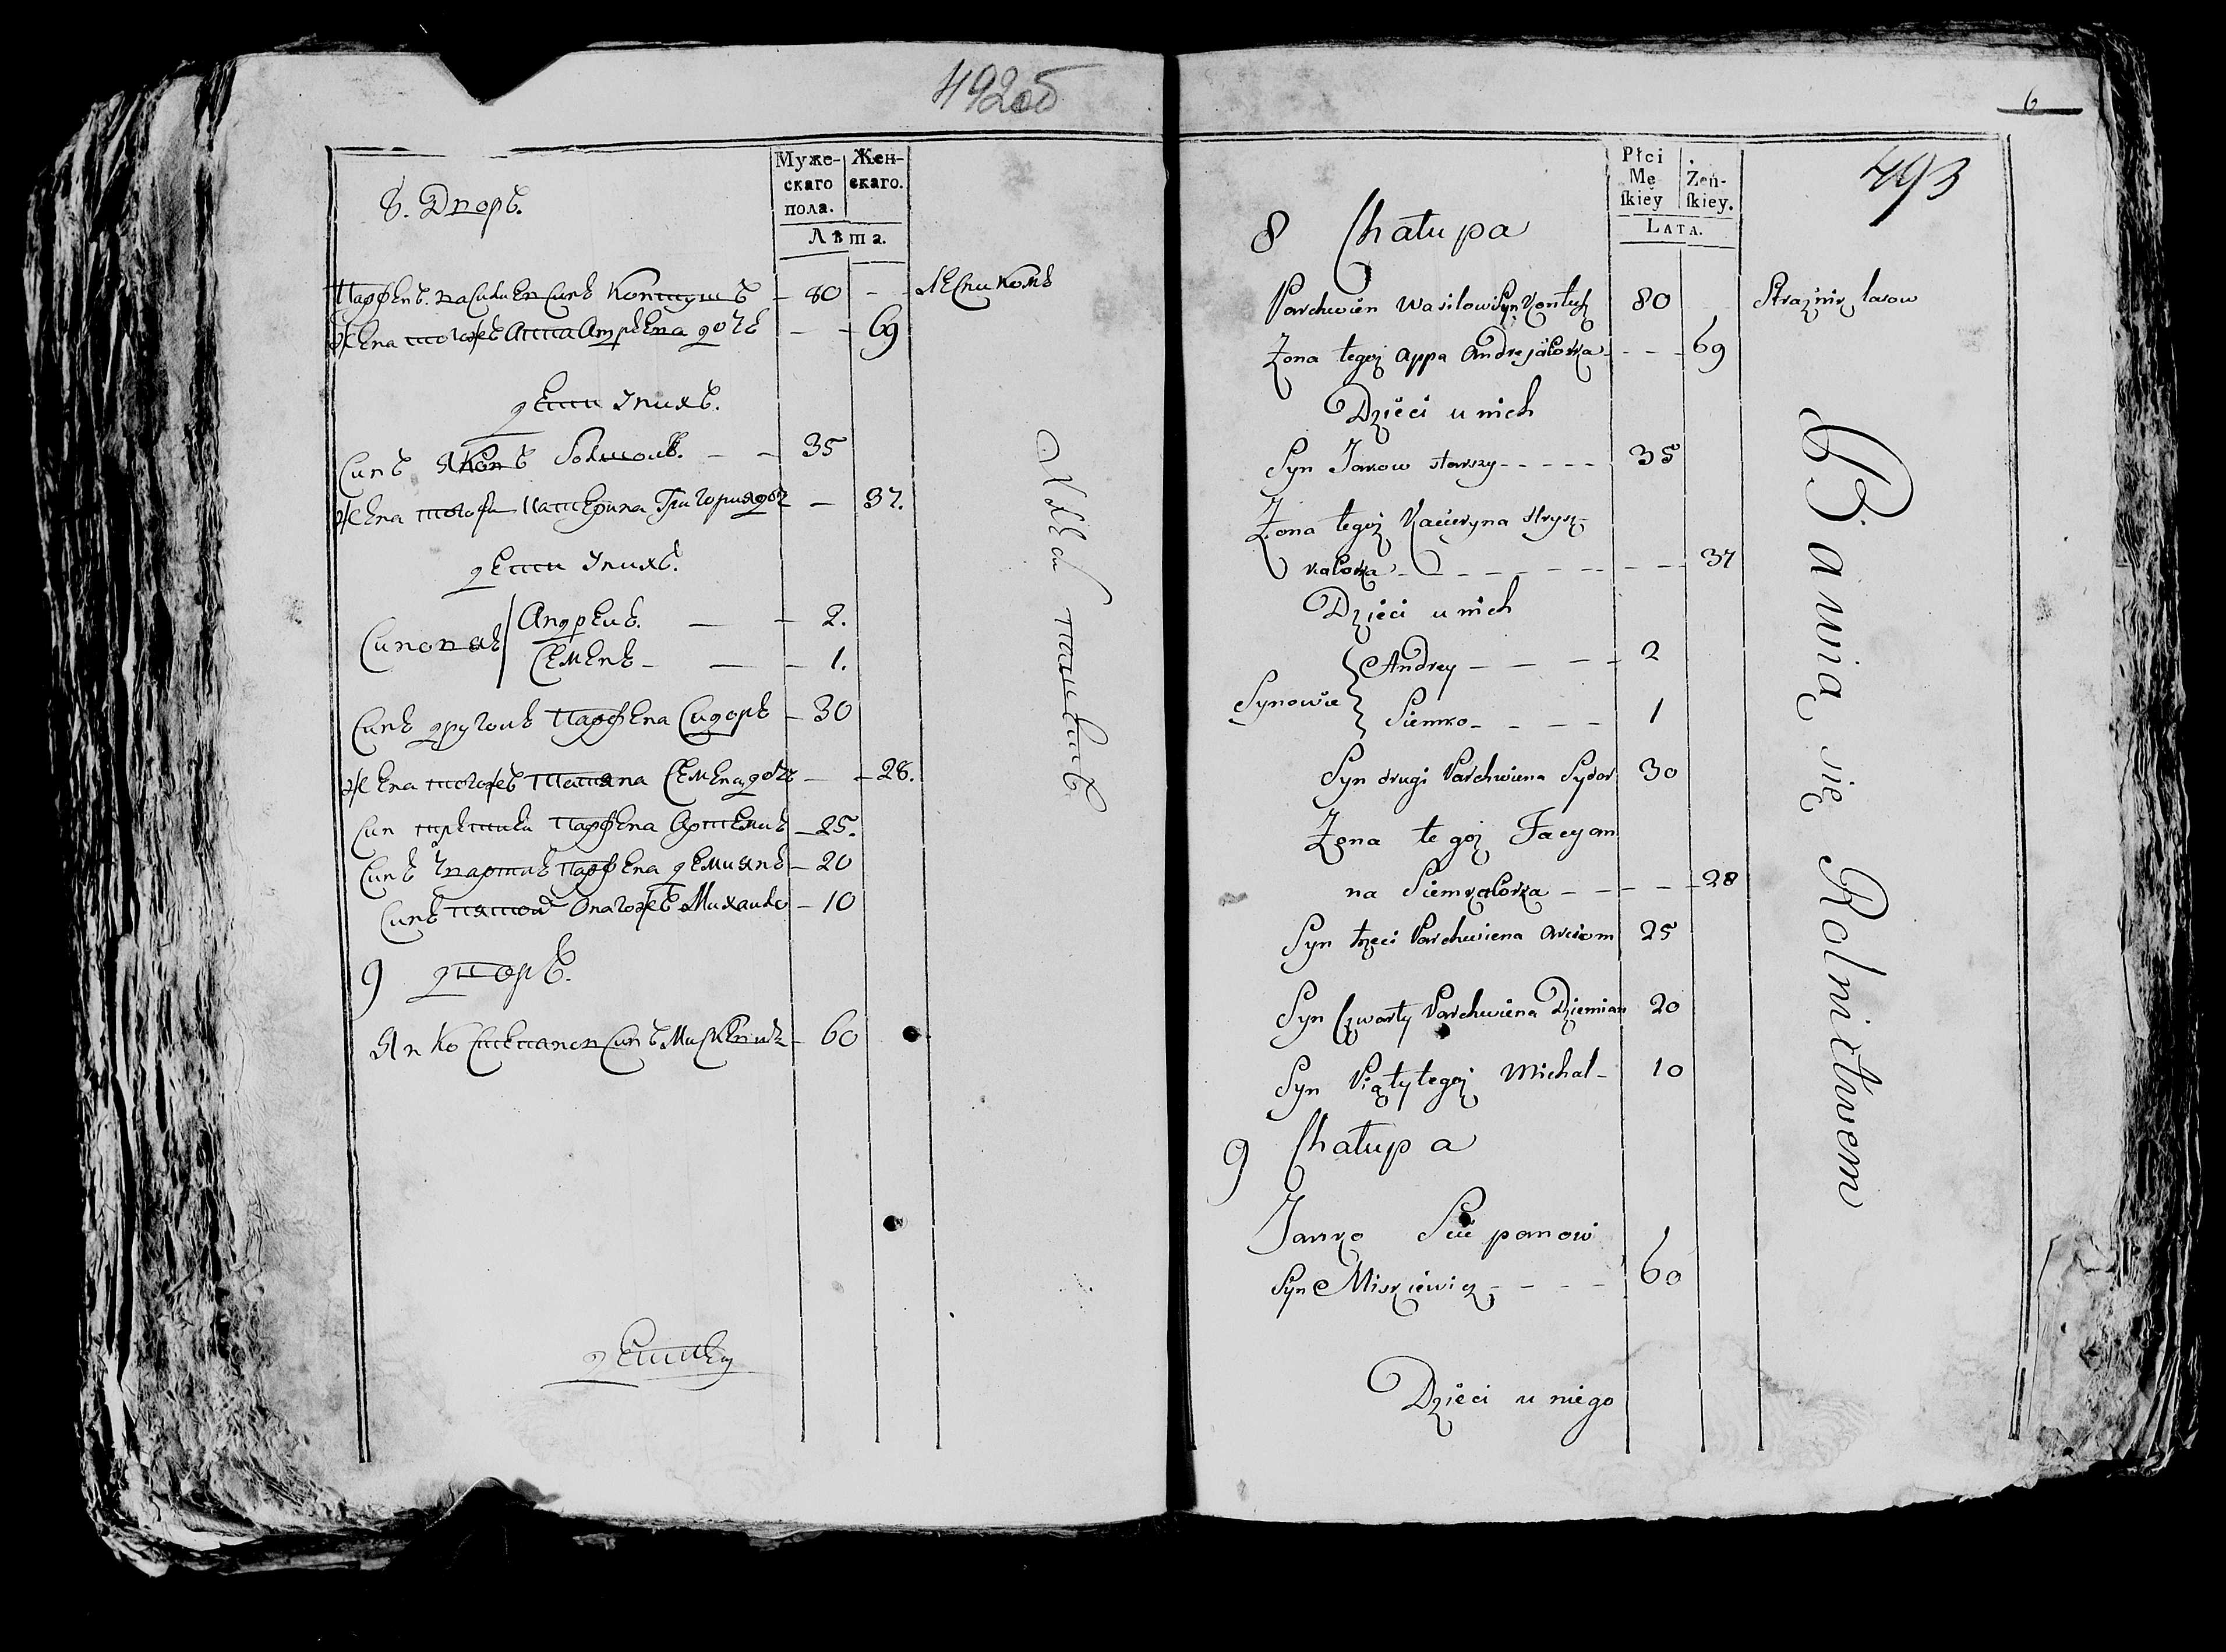 492об
Муже-
скаго
пола.
Жен-
скаго.
Лѣта.
8. Дворъ.
Парфенъ василиев синъ Контушъ — 80 — — лесникомъ
жена тогожъ Анна Андреева дочь — — 69
дети унихъ.
Синъ Яковъ болшой. — — 35
жена тогожъ Катерина Григория доч — 37.
дети унихъ.
Синовья
Андрей. — — 2.
Семенъ — — — 1.
Синъ другой Парфена Сидоръ — 30
жена тогожъ татяна Семена доч — — 28.
Син третий Парфена Артемий — 25.
Синъ чвартий Парфена демиянъ — 20
Синъ пятой Оногожъ Михайло — 10
9 дворъ.
Янко Степанов Синъ Мискевич — 60
детей
хлебопашецъ
6
493
Płci
Mę
ſkiey
Zeń-
ſkiey.
LATA.
8 Chałupa
Parchwien Wasilow Syn Kontusz 80 Strażnik lasow
Żona tegoż Appa Andrejäłowka - - - 69
Dzieci u nich
Syn Jakow starszy - - - - - 35
Żona tegoż Kacieryna Hrysz-
kałowka - - - - - - - - 37
Dzieci u nich
Synowie
Andrey - - - - 2
Siemko - - - - 1
Syn drugi Parchwiena Sydor 30
Żona tegoż Tacyan
na Siemkałowka - - - - - 28
Syn trzeci Parchwiena Arciom 25
Syn Czwarty Parchwiena Dziemian 20
Syn Piąty tegoż Michał - 10
9 Chałupa
Janko Sciepanow
Syn Miskiewicz - - - - 60
Dzieci u niego
Bawią się Rolnictwem